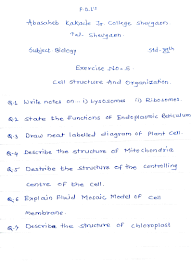 Abasaheb Kakade Jr College, Shevgaon
Tal- Shevgaon.
Subject Biology Std-XIth
Exercise No-5
Cell Structure And Organization.
Q.1 Write notes on :- i) Lysosomes ii) Ribosomes.
Q.2 State the functions of Endoplasmic Reticulum
Q.3 Draw neat labelled diagram of Plant Cell.
Q.4 Describe the structure of Mitochondria
Q.5 Describe the structure of the controlling
centre of the cell.
Q.6 Explain Fluid Mosaic Model of Cell
Membrane.
Q.7 Describe the structure of Chloroplast